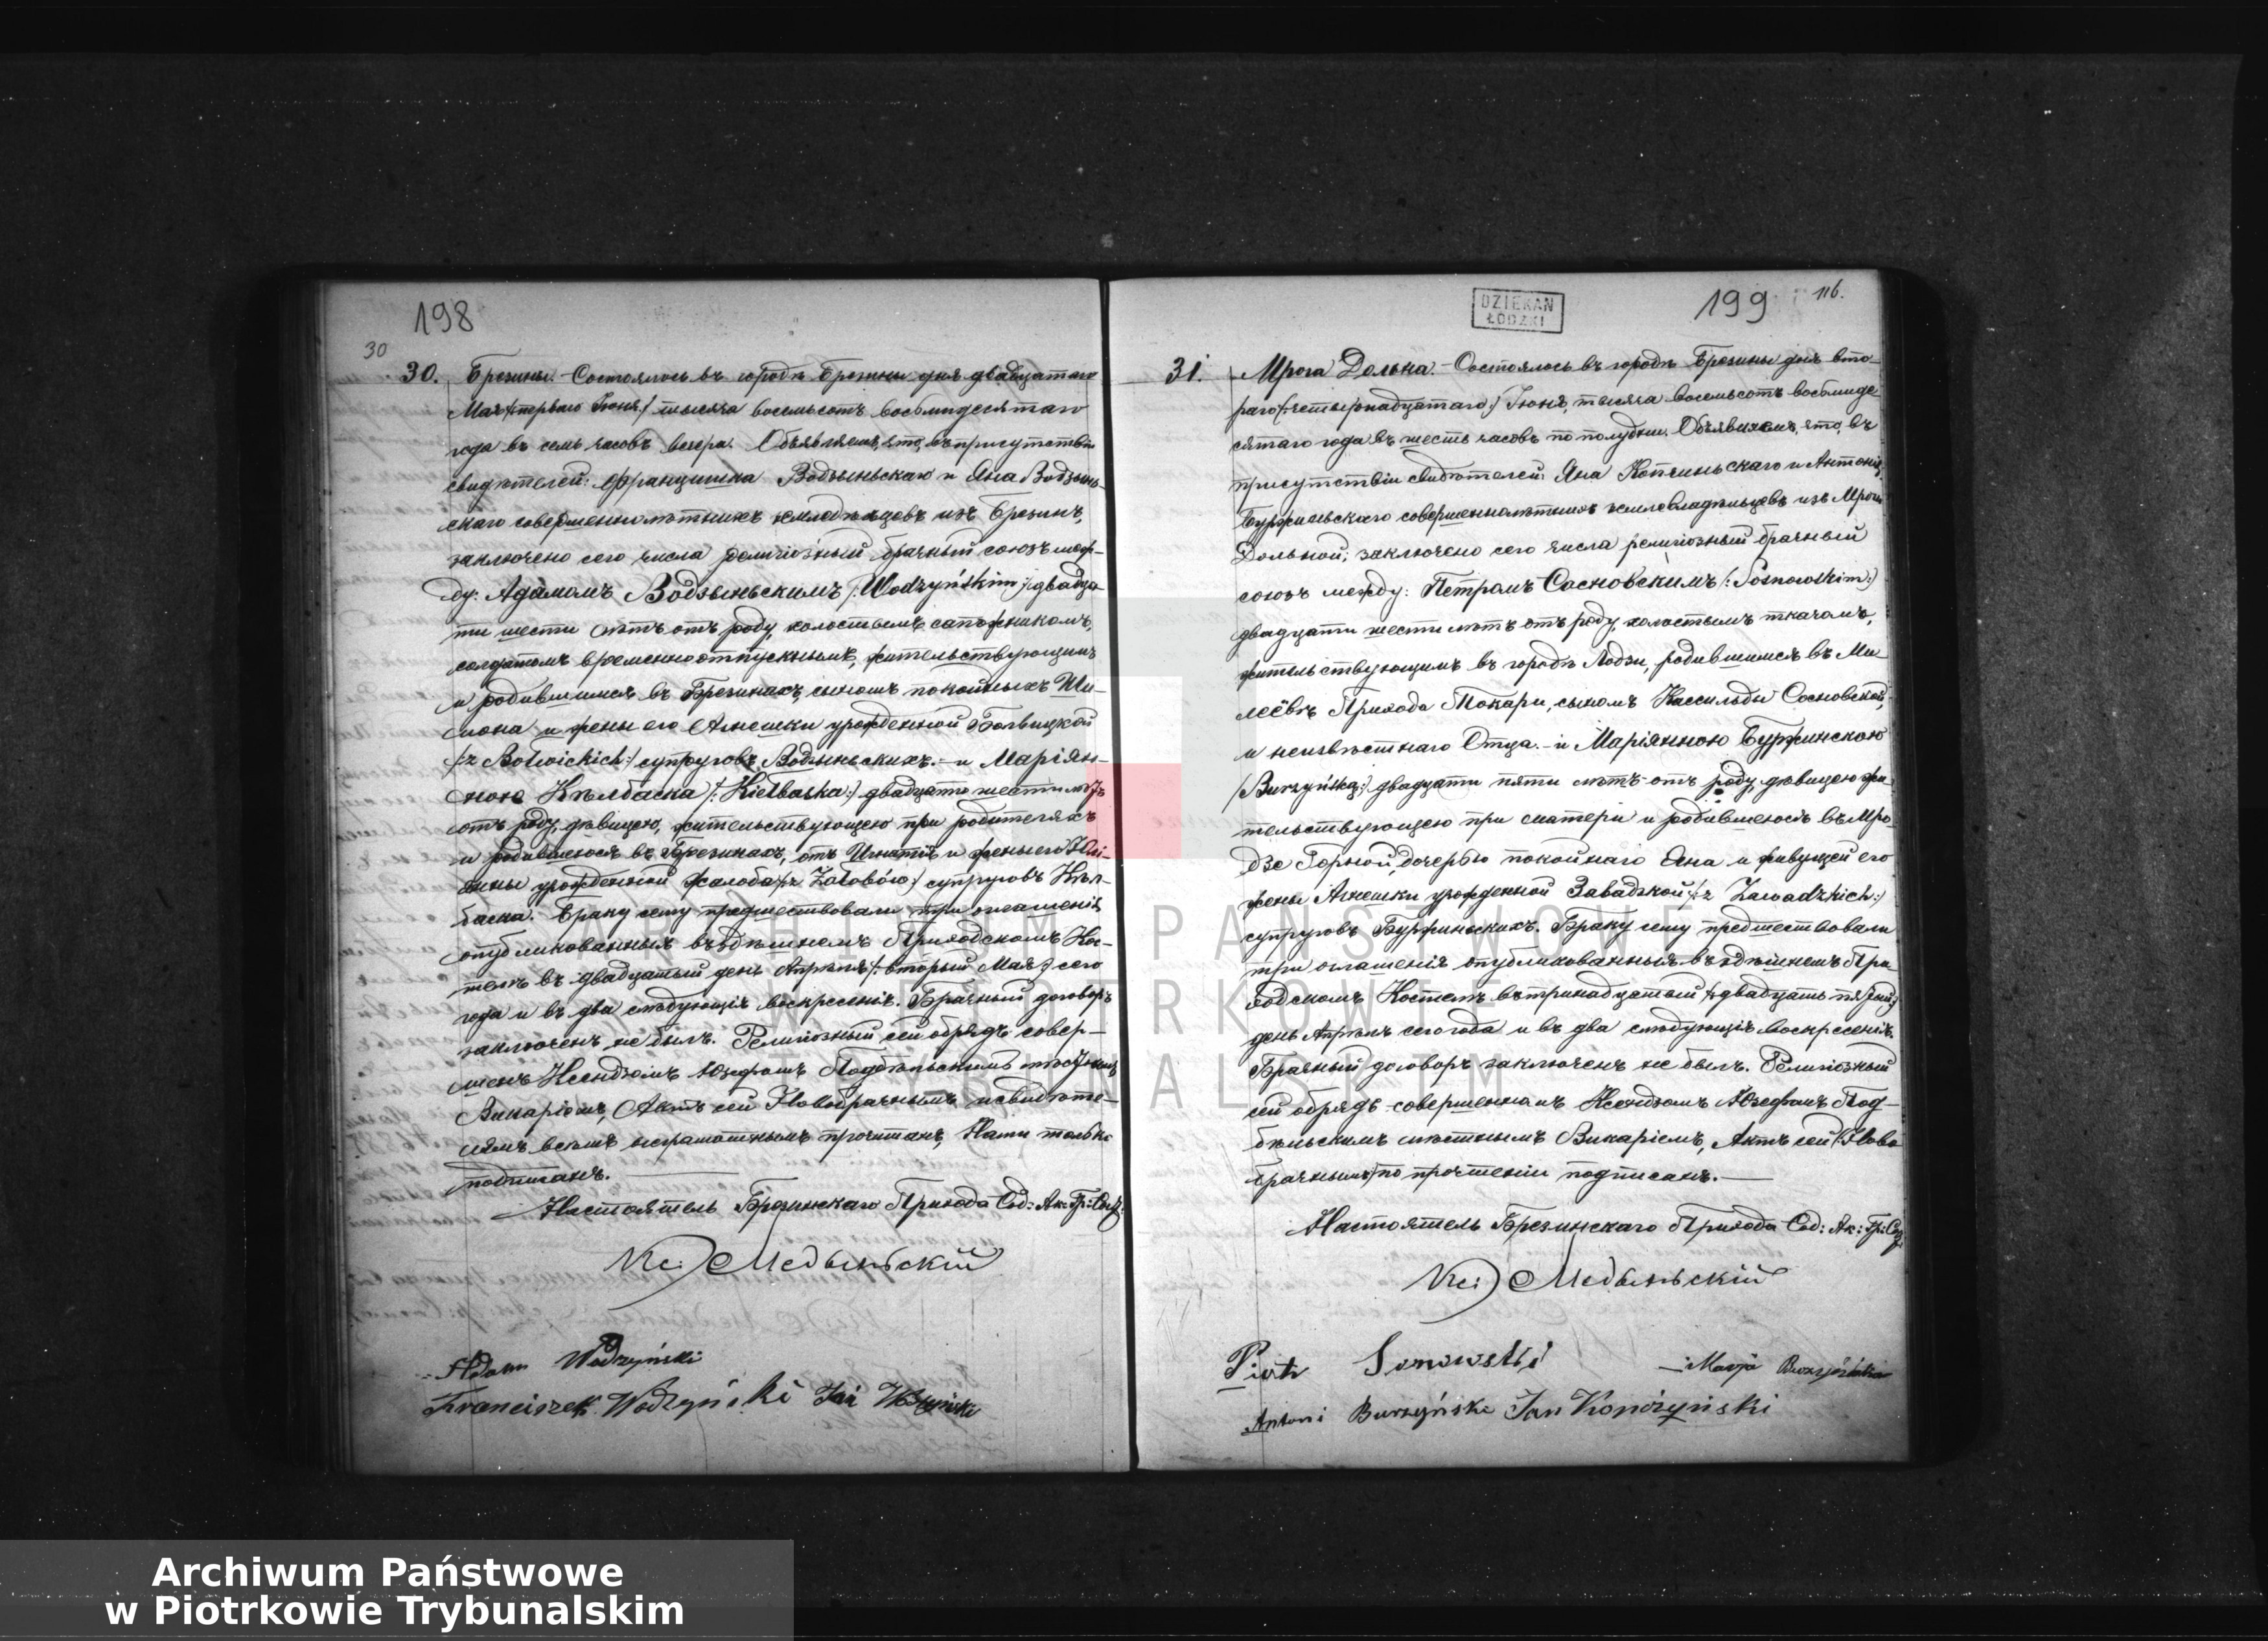 198
30
30. Брезины. Состоялось въ городѣ Брезины дня двадцатаго
Мая /:перваго Іюня:/ тысяча восемьсотъ восьмидесятаго
года въ семь часовъ вечера. Объявляемъ, что, въ присутствіи
свидѣтелей: Францишка Водзыньскаго и Яна Водзынь-
скаго совершеннолѣтнихъ изъ Брезинъ,
заключено сего числа религіозный брачный союзъ меж-
ду: Адамомъ Водзыньскимъ /:Wodzyńskim:/ двадца-
ти шести лѣтъ отъ роду, холостымъ сапожникомъ,
солдатомъ временноотпускнымъ, жительствующимъ
и родившимся въ Брезинахъ, сыномъ покойныхъ Ши-
мона и жены его Агнешки урожденной
супруговъ Водзыньскихъ. и Маріян-
ною Кѣлбаска /:Kiełbaska:/ двадцати шести лѣтъ
отъ роду, дѣвицею, жительствующею при родителяхъ
и родившеюся въ Брезинахъ, отъ Игнатія и жены его Юлі-
янны урожденной Жалоба супруговъ Кѣл-
баска. Браку сему предшествовали три оглашенія
опубликованныя въ здѣшнемъ Приходскомъ Кос-
телѣ въ двадцатый день Апрѣля /:вторый Мая:/ сего
года и въ два слѣдующія воскресенія. Брачный договоръ
заключенъ не былъ. Религіозный сей обрядъ совер-
шенъ Ксендзомъ Юзефомъ Подбѣльскимъ мѣстнымъ
Викаріемъ, Актъ сей Новобрачнымъ и свидѣте-
лямъ прочитанъ, Нами только
подписанъ.
Настоятель Брезинскаго Прихода Сод: Ак: Гр: Сост:
Кс: Медыньскій
Adam Wodzyński
Franciszek Wodzyński Jan Wodzyński
DZIEKAN
ŁÓDZKI
199
116.
31. Мрога Дольна. Состоялось въ городѣ Брезины дня вто-
раго /:четырнадцатаго:/ Іюня, тысяча восемьсотъ восьмиде
сятаго года въ шесть часовъ по полудни. Объявляемъ, что, въ
присутствіи свидѣтелей: Яна Копчиньскаго и Антонія
Буржиньскаго совершеннолѣтнихъ землевладѣльцовъ изъ Мроги
Дольной; заключено сего числа религіозный брачный
союзъ между: Петромъ Сосновскимъ /:Sosnowskim:/
двадцати шести лѣтъ отъ роду, холостымъ ткачомъ,
жительствующимъ въ городѣ Лодзи, родившимся въ Ми-
леёвѣ Прихода Токари, сыномъ Кассильды Сосновской,
и неизвѣстнаго Отца. и Маріянною Буржинскою
/:Burzyńską:/ двадцати пяти лѣтъ отъ роду, дѣвицею жи-
тельствующею при матери и родившеюся въ Мро-
дзе Горной, дочерью покойнаго Яна и живущей его
жены Агнешки урожденной Завадзкой /:z Zawadzkich:/
супруговъ Буржиньскихъ. Браку сему предшествовали
три оглашенія опубликованныя въ здѣшнемъ При-
ходскомъ Костелѣ въ тринадцатый /:двадцать пятый:/
день Апрѣля сего года и въ два слѣдующія воскресенія.
Брачный договоръ заключенъ не былъ. Религіозный
сей обрядъ совершенъ Ксендзомъ Юзефомъ Под-
бѣльскимъ мѣстнымъ Викаріемъ, Актъ сей Ново
брачнымъ по прочтеніи подписанъ.
Настоятель Брезинскаго Прихода Сод: Ак: Гр: Сос:
Кс: Медыньскій
Piotr Sosnowski Marja Burzyńska
Antoni Burzyński Jan Kopczyński
ARCHIWUM PAŃSTWOWE
W PIOTRKOWIE
TRYBUNALSKIM
Archiwum Państwowe
w Piotrkowie Trybunalskim